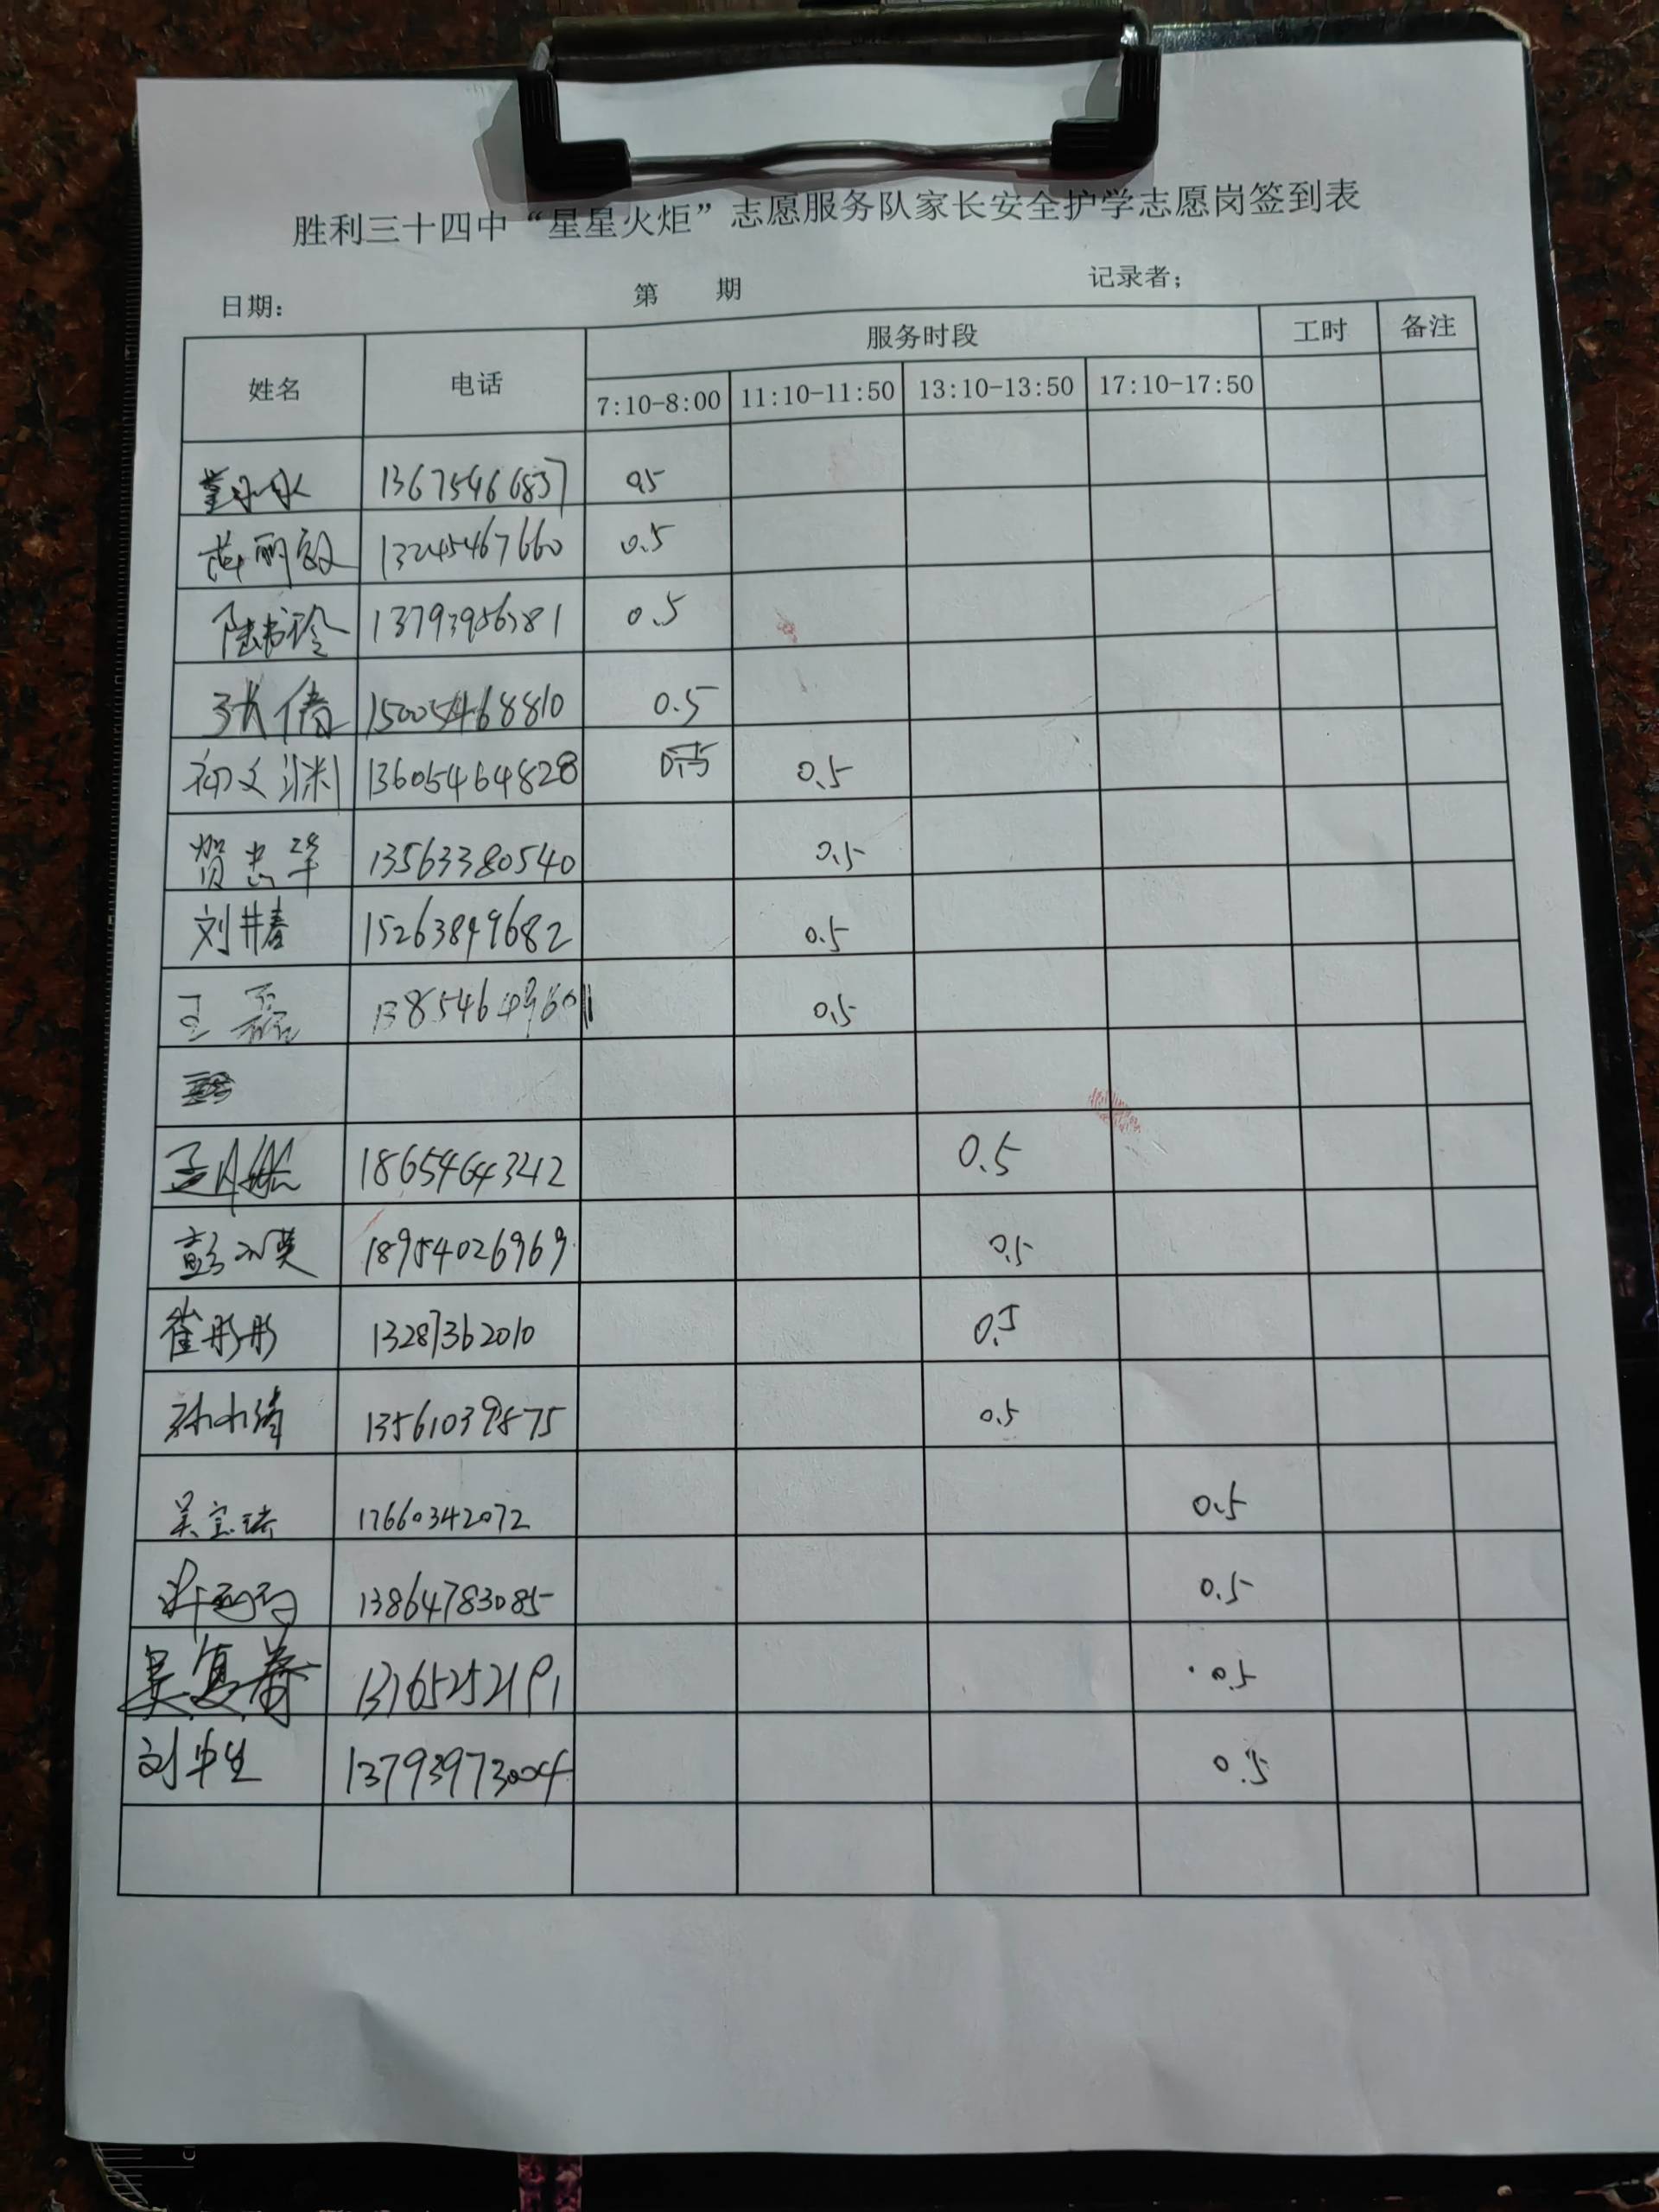 胜利三十四中“星星火炬”志愿服务队家长安全护学志愿岗签到表
日期： 第 期 记录者；
姓名 电话 服务时段 工时 备注
7:10-8:00 11:10-11:50 13:10-13:50 17:10-17:50
13675466837 0.5
丽敏 13245467660 0.5
陆书玲 13793956381 0.5
张倩 15005468810 0.5
初文渊 13605464828 0.5
贺忠华 13563380540 0.5
刘井春 15263849682 0.5
王磊 0.5
18654643212 0.5
彭 英 18954026969 0.5
崔彤彤 13287362010 0.5
孙小清 13561039875 0.5
吴宝 17660342072 0.5
13864783085 0.5
吴复 0.5
刘中生 13793973004 0.5